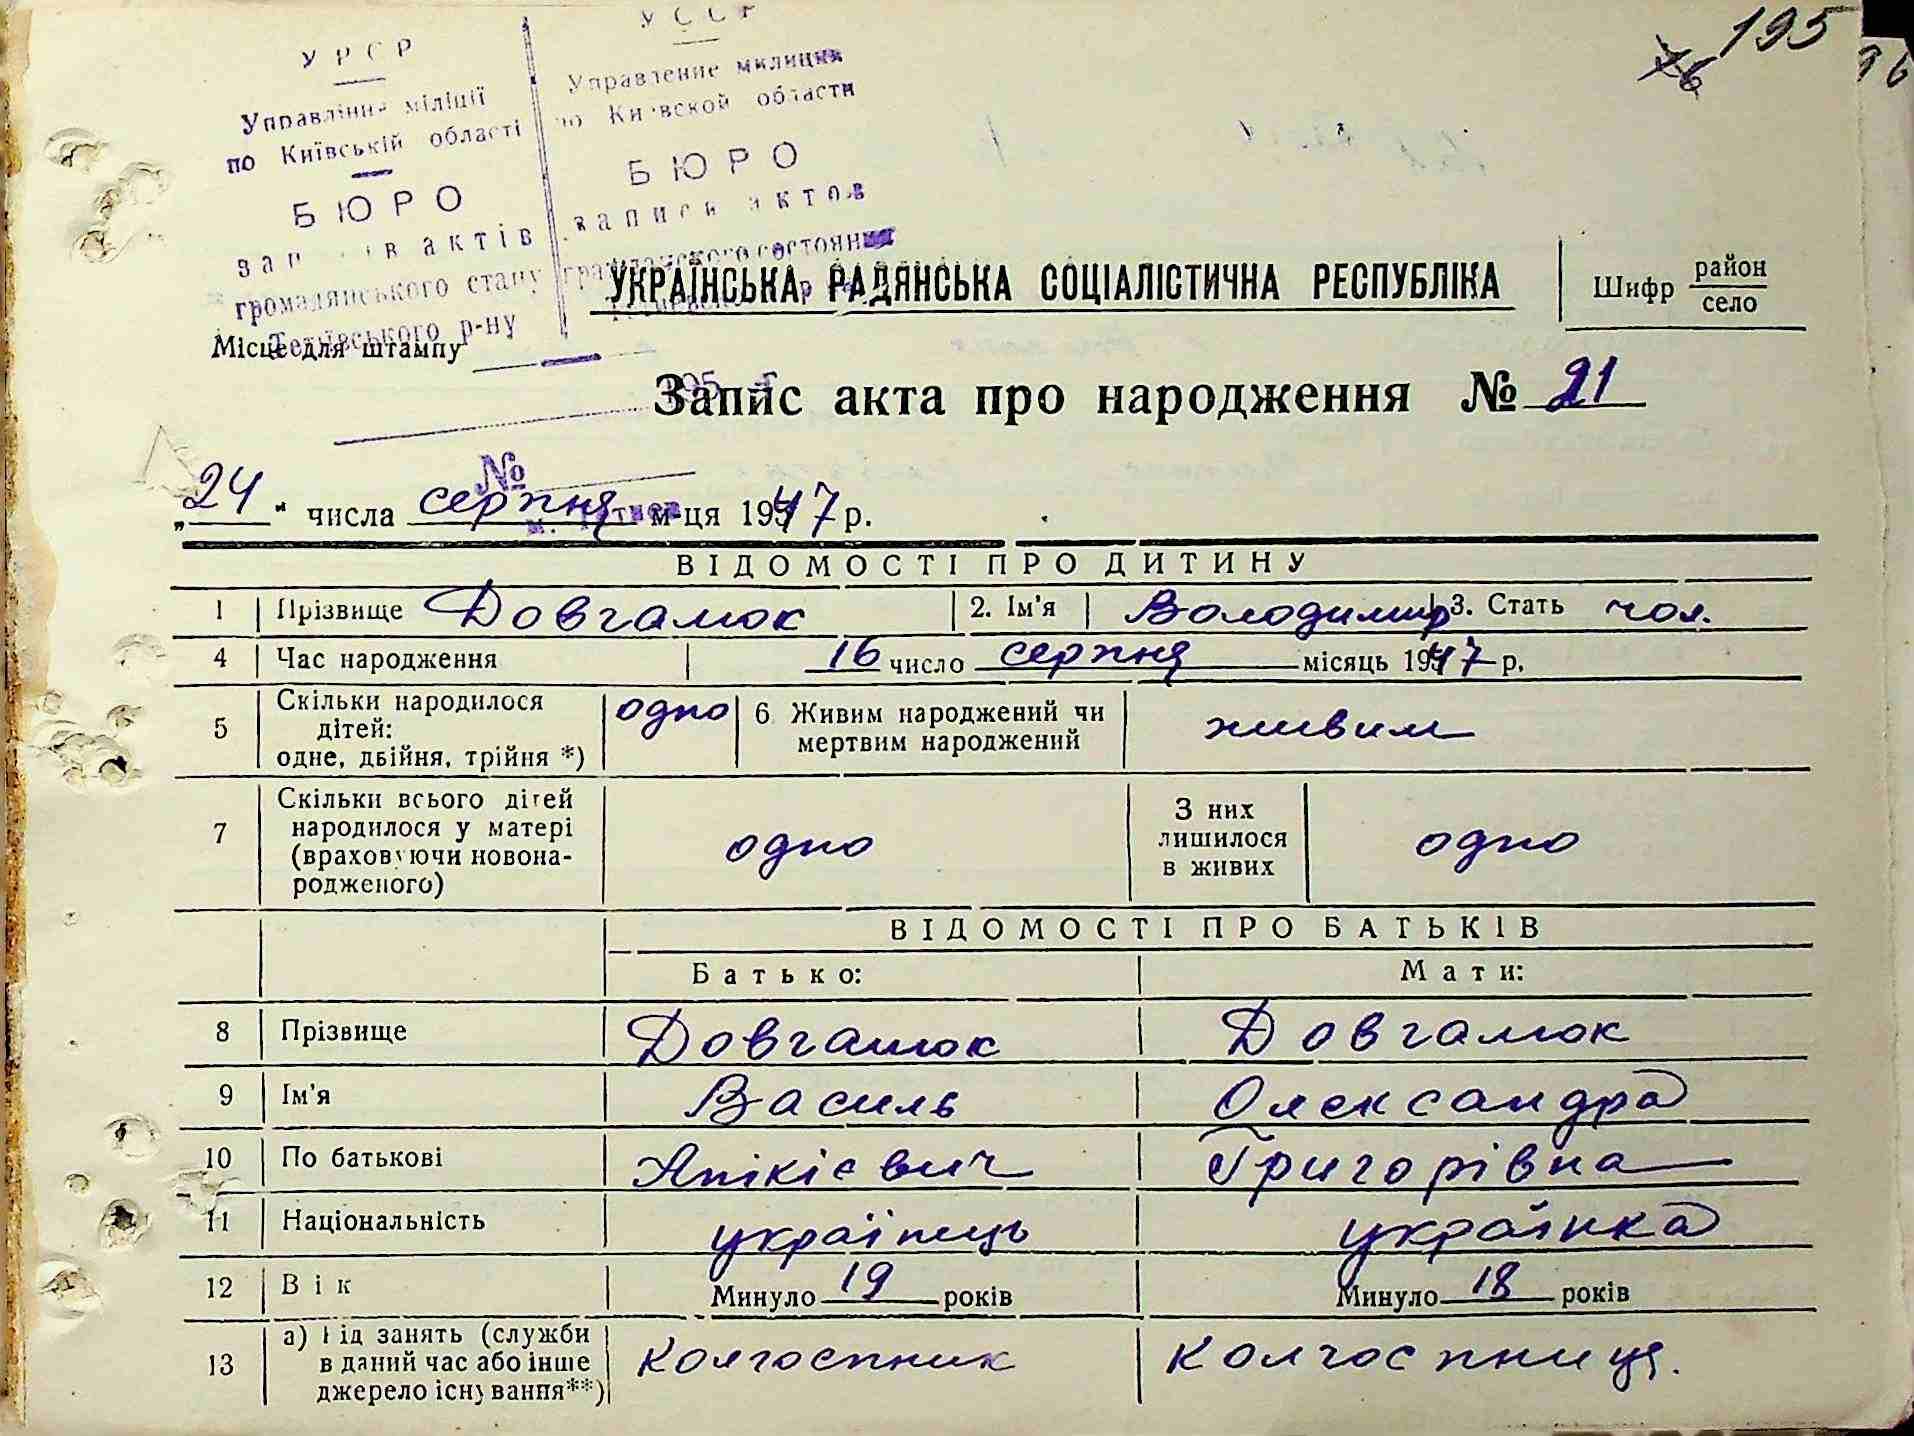 195
96
УРСР
Управління міліції
по Київській області
БЮРО
записів актів
громадянського стану
Тетіївського р-ну
УССР
Управление милиции
по Киевской области
БЮРО
записи актов
гражданского состояния
195 г.
№
м. Тетиев
УКРАЇНСЬКА РАДЯНСЬКА СОЦІАЛІСТИЧНА РЕСПУБЛІКА
Шифр район
село
Місце для штампу
Запис акта про народження № 21
„24" числа серпня м-ця 1947 р.
ВІДОМОСТІ ПРО ДИТИНУ
1 Прізвище Довгалюк 2. Ім'я Володимир 3. Стать чол.
4 Час народження 16 число серпня місяць 1947 р.
5 Скільки народилося дітей: одне, двійня, трійня *) одно 6 Живим народжений чи мертвим народжений живим
7 Скільки всього дітей народилося у матері (враховуючи новонародженого) одно З них лишилося в живих одно
ВІДОМОСТІ ПРО БАТЬКІВ
Батько: Мати:
8 Прізвище Довгалюк Довгалюк
9 Ім'я Василь Олександра
10 По батькові Янікієвич Григорівна
11 Національність українець українка
12 Вік Минуло 19 років Минуло 18 років
13 а) Рід занять (служби в даний час або інше джерело існування**) Колгоспник Колгоспниця.